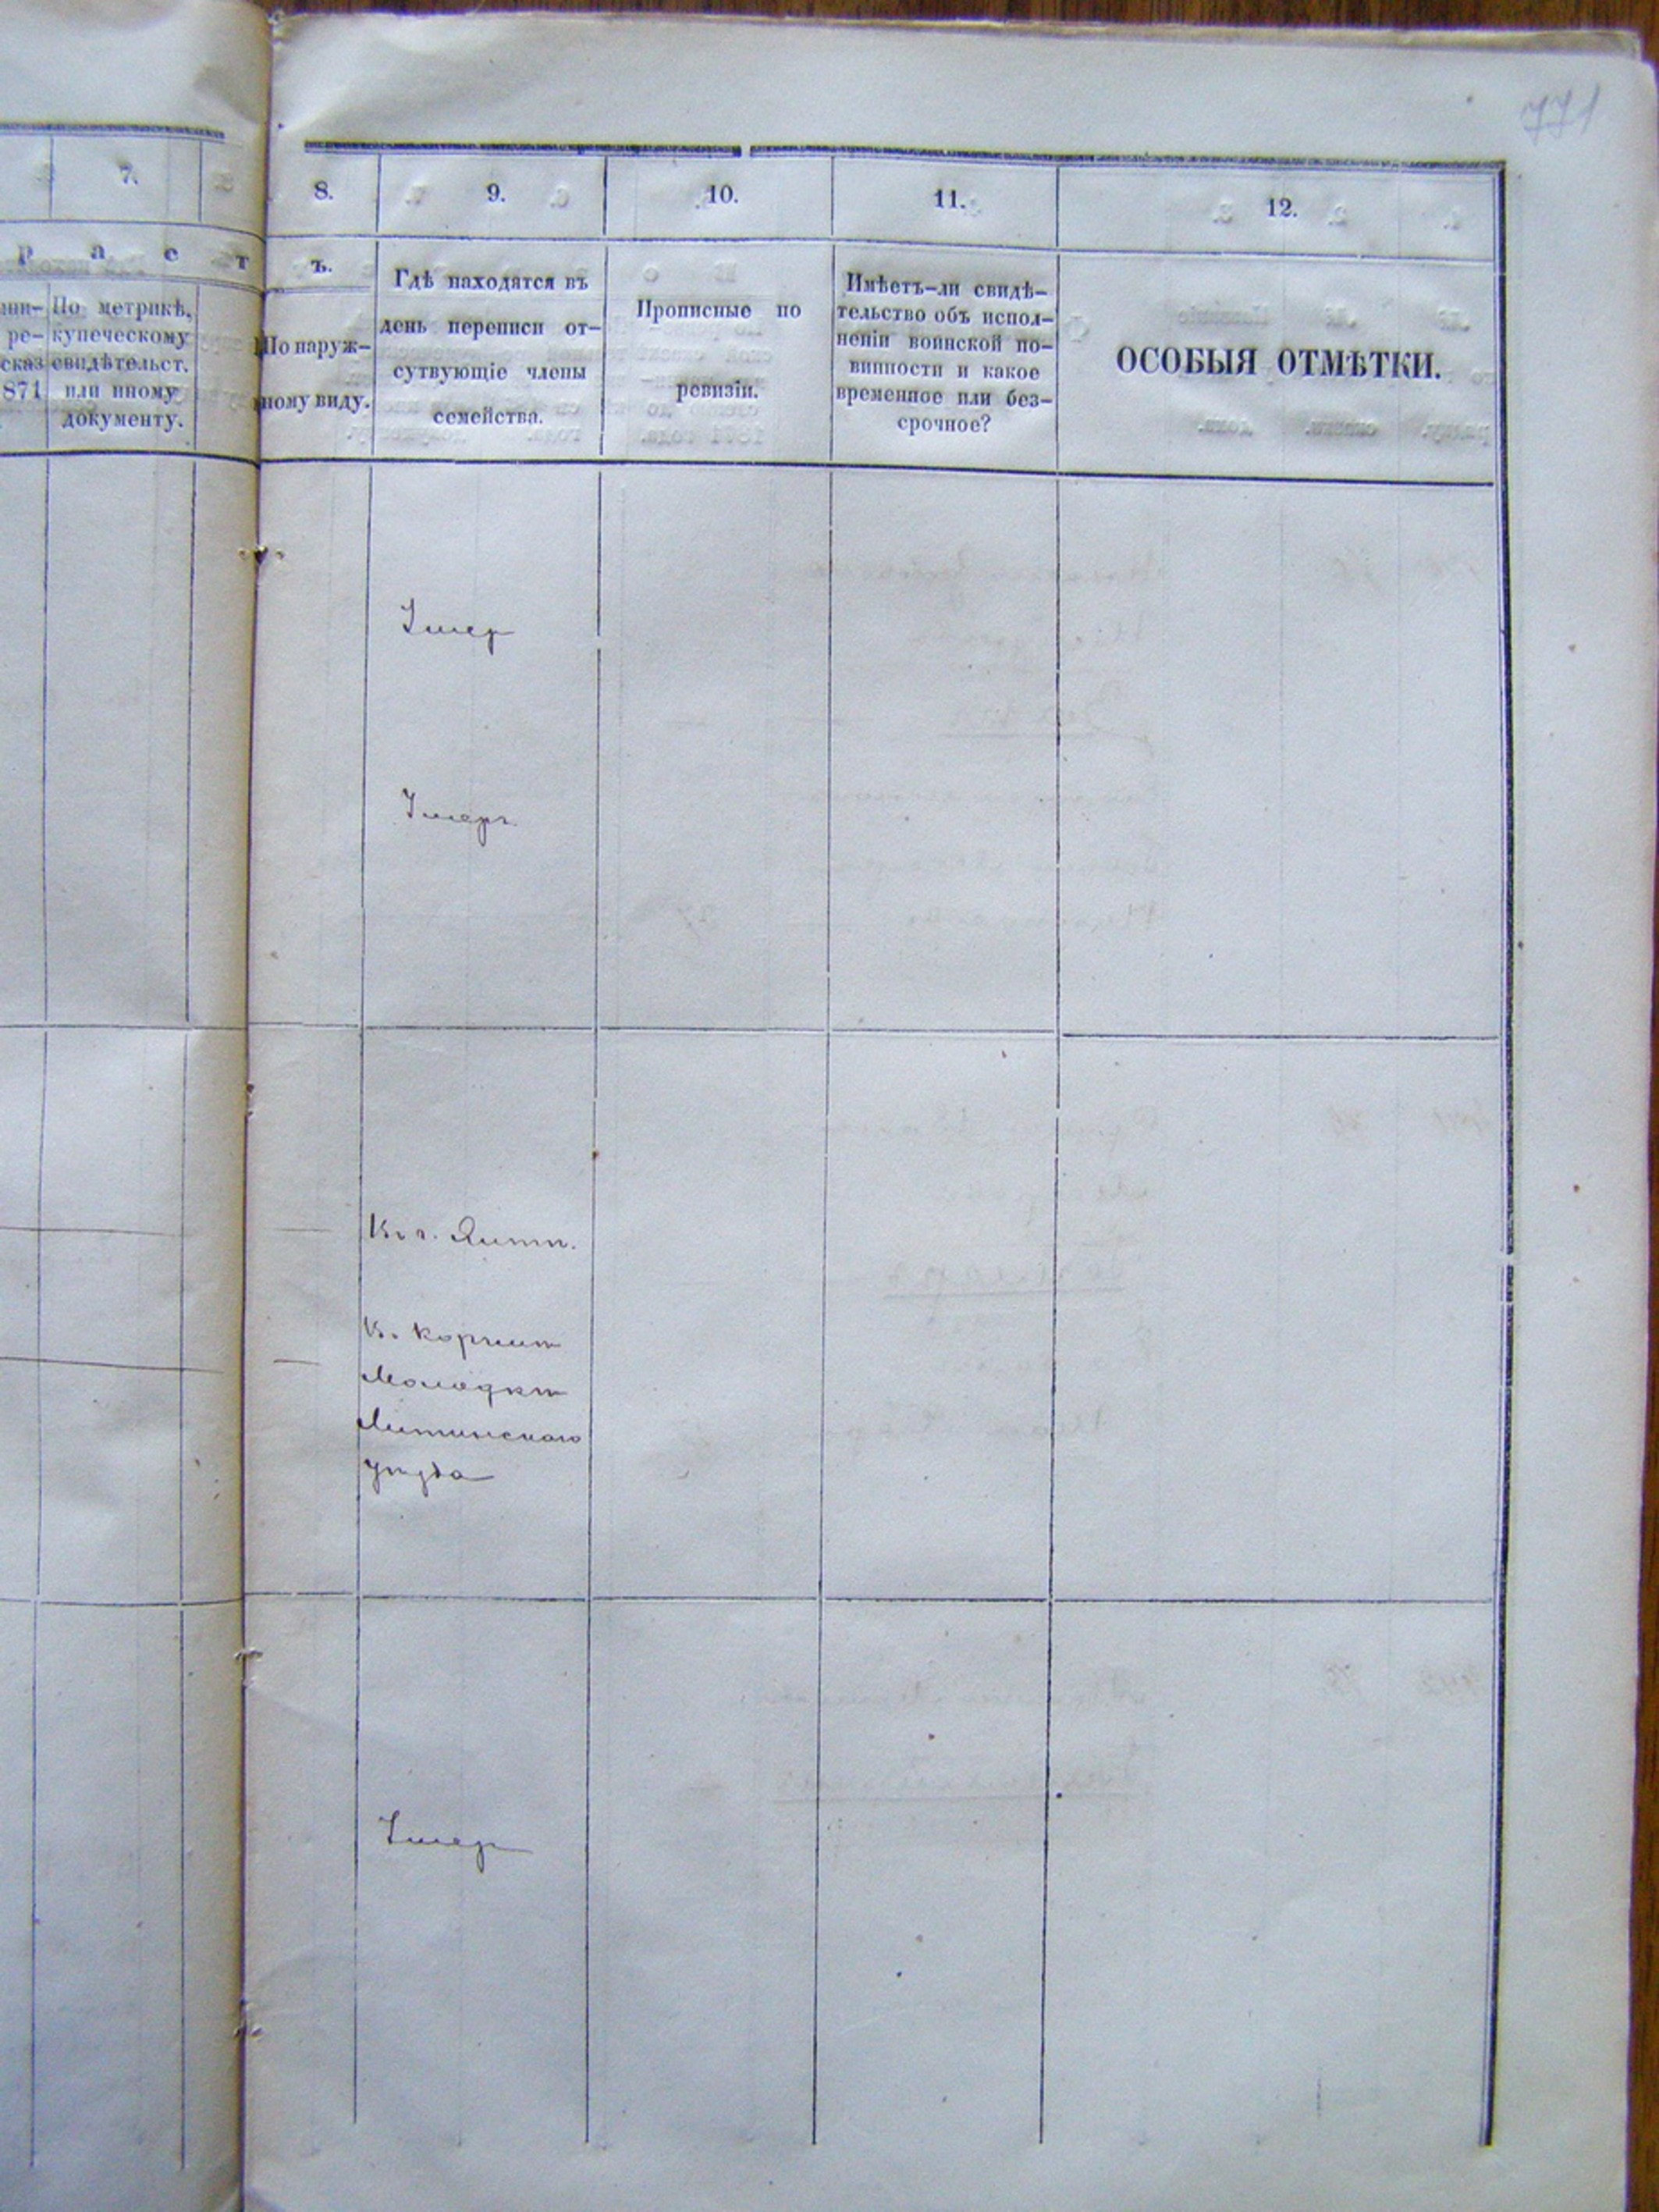 771
7.
8.
9.
10.
11.
12.
р а с т
ъ.
По метрикѣ,
купеческому
свидѣтельст.
или иному
документу.
871
По наруж-
ному виду.
Гдѣ находятся въ
день переписи от-
сутвующіе члены
семейства.
Прописные по
ревизіи.
Имѣетъ-ли свидѣ-
тельство объ испол-
неніи воинской по-
винности и какое
временное или без-
срочное?
ОСОБЫЯ ОТМѢТКИ.
Умер
Умеръ
В. г.
В. Корчмѣ
Литинскаго
уѣзда
Умер